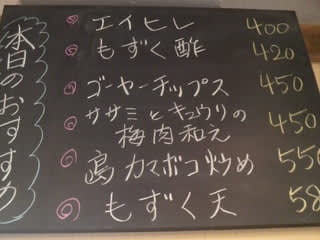 本日のおすすめ
エイヒレ 400
もずく酢 420
ゴーヤーチップス 450
ササミとキュウリの
梅肉和え 450
島カマボコ炒め 550
もずく天 58